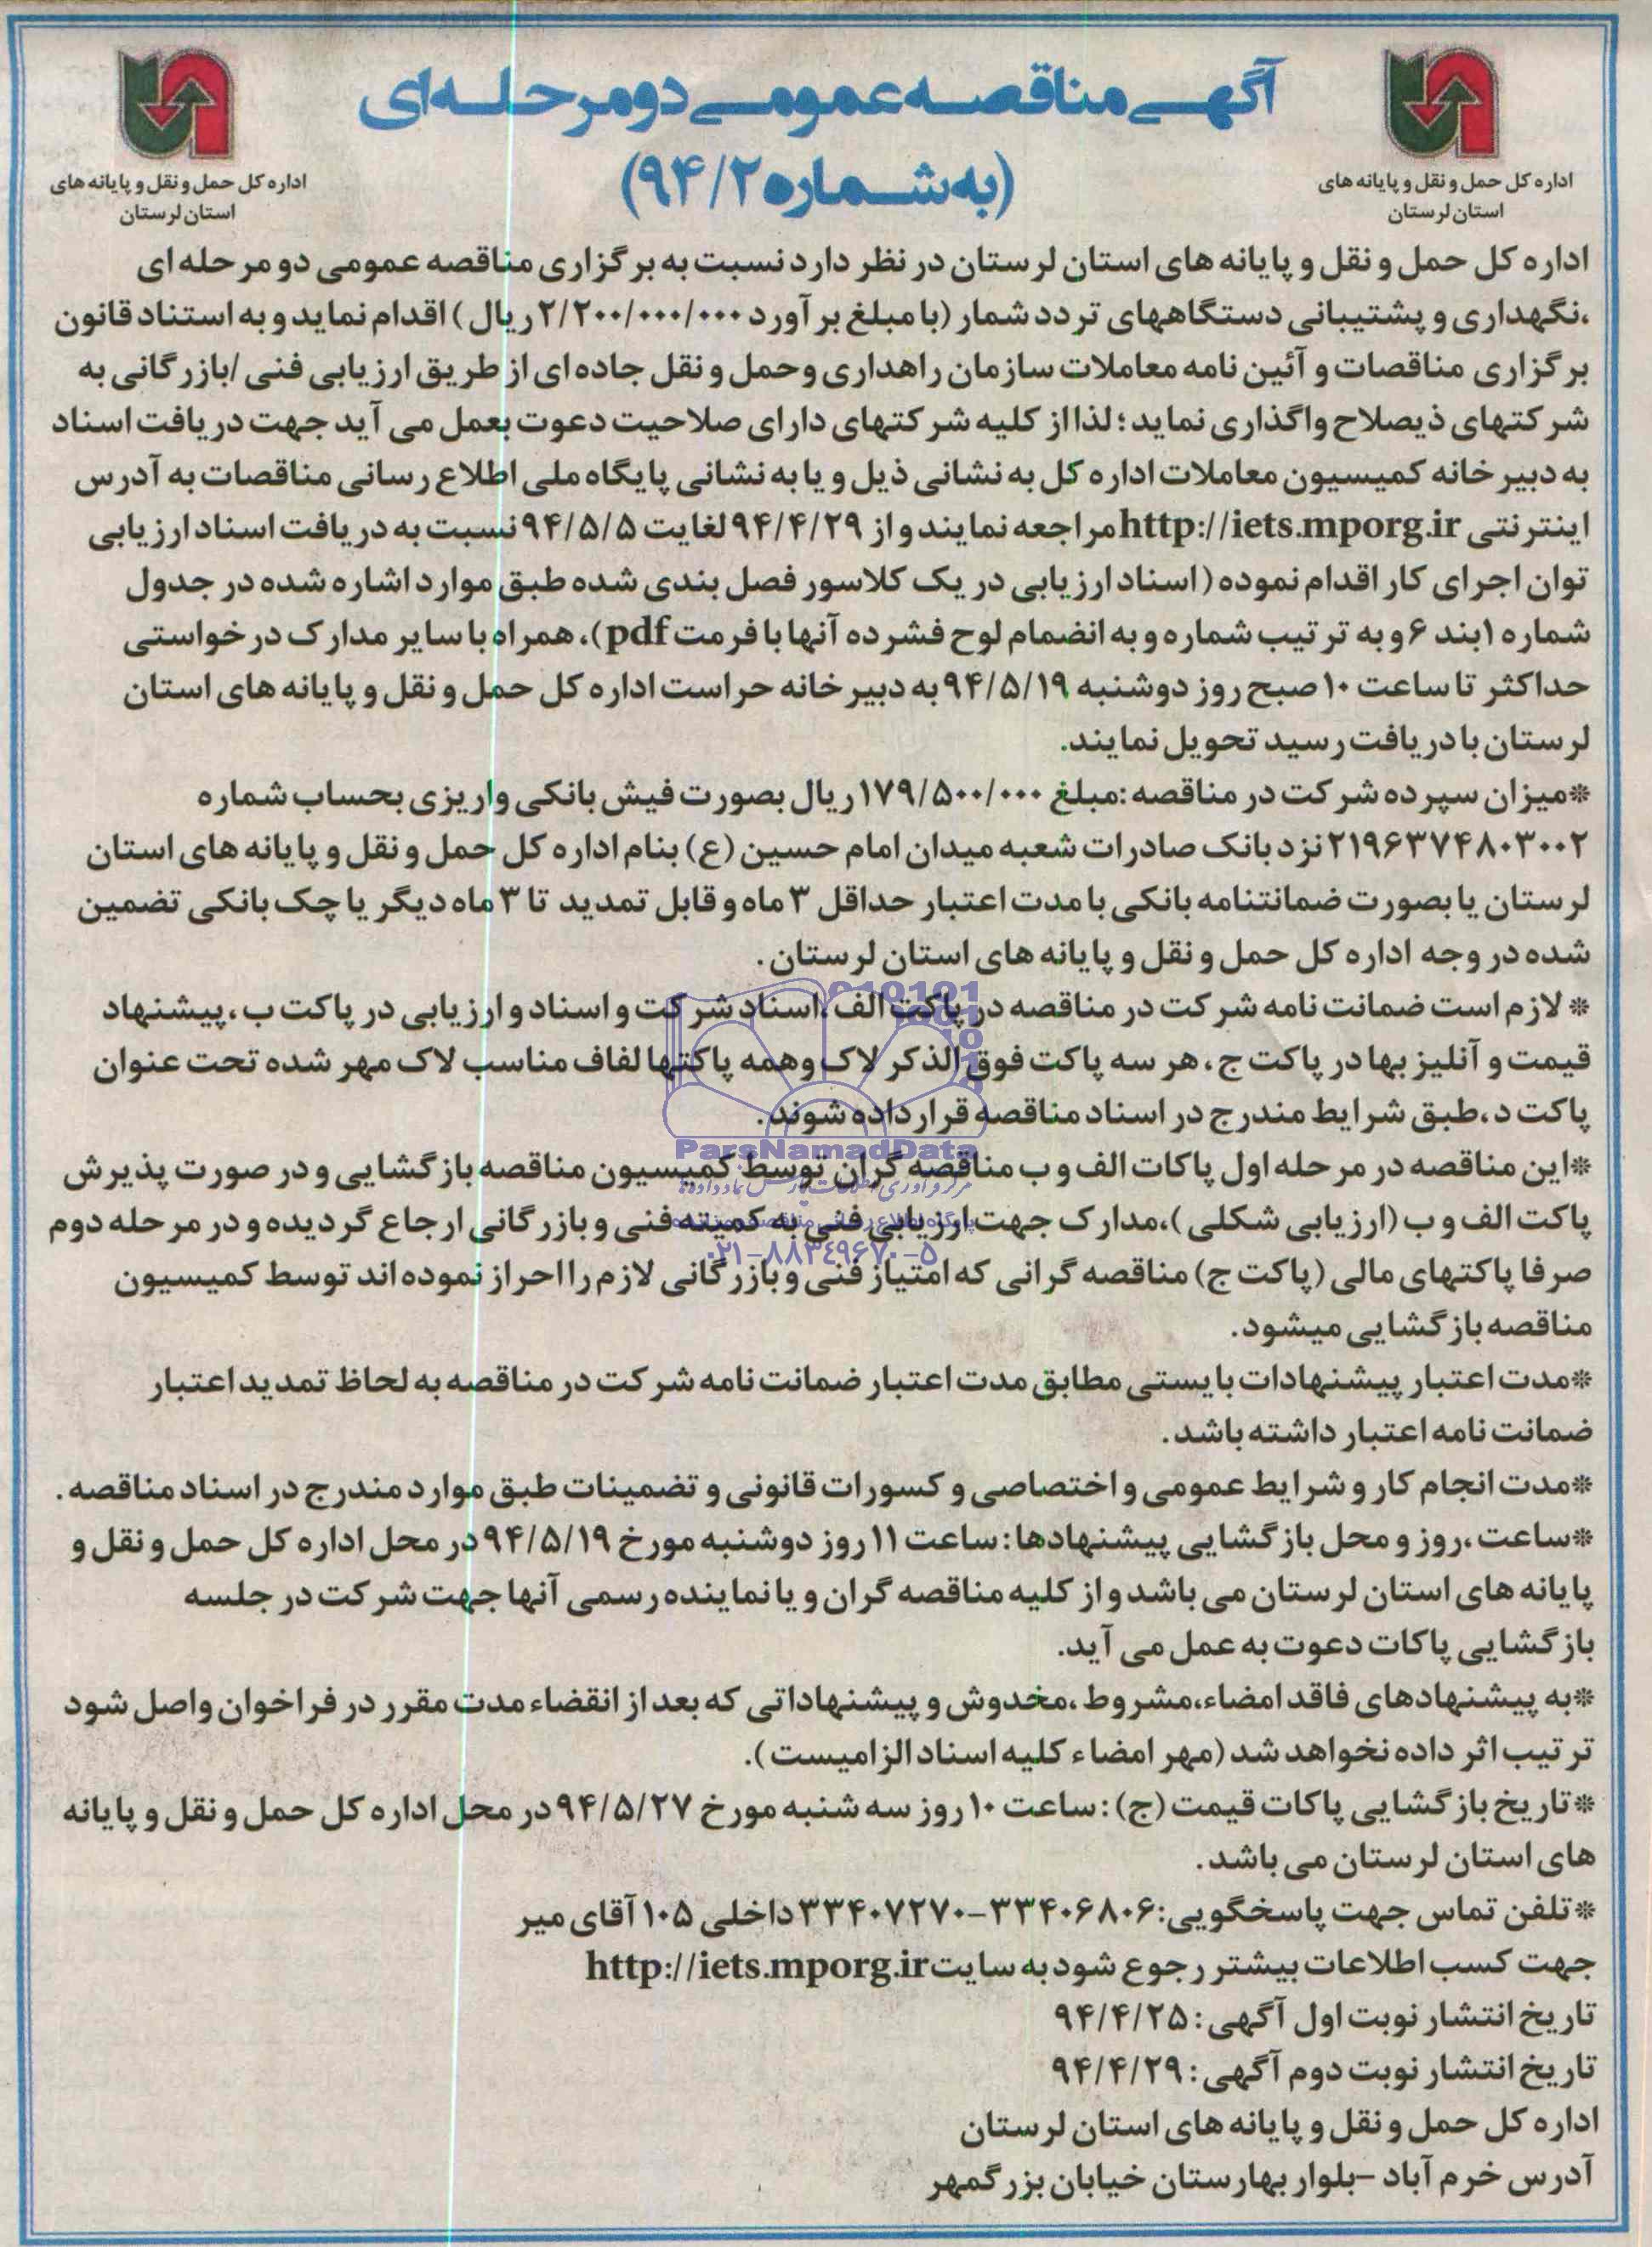 آگهی مناقصه عمومی دومرحله‌ای
(به شماره ۹۴/۲)
اداره کل حمل و نقل و پایانه های
استان لرستان
اداره کل حمل و نقل و پایانه های
استان لرستان
اداره کل حمل و نقل و پایانه های استان لرستان در نظر دارد نسبت به برگزاری مناقصه عمومی دو مرحله ای
،نگهداری و پشتیبانی دستگاههای تردد شمار (با مبلغ برآورد ۲/۲۰۰/۰۰۰/۰۰۰ ریال) اقدام نماید و به استناد قانون
برگزاری مناقصات و آئین نامه معاملات سازمان راهداری و حمل و نقل جاده ای از طریق ارزیابی فنی /بازرگانی به
شرکتهای ذیصلاح واگذاری نماید؛ لذا از کلیه شرکتهای دارای صلاحیت دعوت بعمل می آید جهت دریافت اسناد
به دبیرخانه کمیسیون معاملات اداره کل به نشانی ذیل و یا به نشانی پایگاه ملی اطلاع رسانی مناقصات به آدرس
اینترنتی http://iets.mporg.ir مراجعه نمایند و از ۹۴/۴/۲۹ لغایت ۹۴/۵/۵ نسبت به دریافت اسناد ارزیابی
توان اجرای کار اقدام نموده (اسناد ارزیابی در یک کلاسور فصل بندی شده طبق موارد اشاره شده در جدول
شماره ۱بند ۶ و به ترتیب شماره و به انضمام لوح فشرده آنها با فرمت pdf)، همراه با سایر مدارک درخواستی
حداکثر تا ساعت ۱۰ صبح روز دوشنبه ۹۴/۵/۱۹ به دبیرخانه حراست اداره کل حمل و نقل و پایانه های استان
لرستان با دریافت رسید تحویل نمایند.
*میزان سپرده شرکت در مناقصه :مبلغ ۱۷۹/۵۰۰/۰۰۰ ریال بصورت فیش بانکی واریزی بحساب شماره
۲۱۹۶۳۷۴۸۰۳۰۰۲ نزد بانک صادرات شعبه میدان امام حسین (ع) بنام اداره کل حمل و نقل و پایانه های استان
لرستان یا بصورت ضمانتنامه بانکی با مدت اعتبار حداقل ۳ ماه و قابل تمدید تا ۳ ماه دیگر یا چک بانکی تضمین
شده در وجه اداره کل حمل و نقل و پایانه های استان لرستان.
* لازم است ضمانت نامه شرکت در مناقصه در پاکت الف ،اسناد شرکت و اسناد و ارزیابی در پاکت ب، پیشنهاد
قیمت و آنلیز بها در پاکت ج، هر سه پاکت فوق الذکر لاک و همه پاکتها لفاف مناسب لاک مهر شده تحت عنوان
پاکت د،طبق شرایط مندرج در اسناد مناقصه قرار داده شوند.
ParsNamadData
*این مناقصه در مرحله اول پاکات الف و ب مناقصه گران توسط کمیسیون مناقصه بازگشایی و در صورت پذیرش
پاکت الف و ب (ارزیابی شکلی )،مدارک جهت ارزیابی فنی به کمیته فنی و بازرگانی ارجاع گردیده و در مرحله دوم
۰۲۱-۸۸۳۴۹۶۷۰-۵
صرفا پاکتهای مالی (پاکت ج) مناقصه گرانی که امتیاز فنی و بازرگانی لازم را احراز نموده اند توسط کمیسیون
مناقصه بازگشایی میشود.
*مدت اعتبار پیشنهادات بایستی مطابق مدت اعتبار ضمانت نامه شرکت در مناقصه به لحاظ تمدید اعتبار
ضمانت نامه اعتبار داشته باشد.
*مدت انجام کار و شرایط عمومی و اختصاصی و کسورات قانونی و تضمینات طبق موارد مندرج در اسناد مناقصه.
*ساعت ،روز و محل بازگشایی پیشنهادها: ساعت ۱۱ روز دوشنبه مورخ ۹۴/۵/۱۹ در محل اداره کل حمل و نقل و
پایانه های استان لرستان می باشد و از کلیه مناقصه گران و یا نماینده رسمی آنها جهت شرکت در جلسه
بازگشایی پاکات دعوت به عمل می آید.
*به پیشنهادهای فاقد امضاء،مشروط ،مخدوش و پیشنهاداتی که بعد از انقضاء مدت مقرر در فراخوان واصل شود
ترتیب اثر داده نخواهد شد (مهر امضاء کلیه اسناد الزامیست).
*تاریخ بازگشایی پاکات قیمت (ج): ساعت ۱۰ روز سه شنبه مورخ ۹۴/۵/۲۷ در محل اداره کل حمل و نقل و پایانه
های استان لرستان می باشد.
*تلفن تماس جهت پاسخگویی:۳۳۴۰۶۸۰۶-۳۳۴۰۷۲۷۰ داخلی ۱۰۵ آقای میر
جهت کسب اطلاعات بیشتر رجوع شود به سایت http://iets.mporg.ir
تاریخ انتشار نوبت اول آگهی: ۹۴/۴/۲۵
تاریخ انتشار نوبت دوم آگهی: ۹۴/۴/۲۹
اداره کل حمل و نقل و پایانه های استان لرستان
آدرس خرم آباد -بلوار بهارستان خیابان بزرگمهر